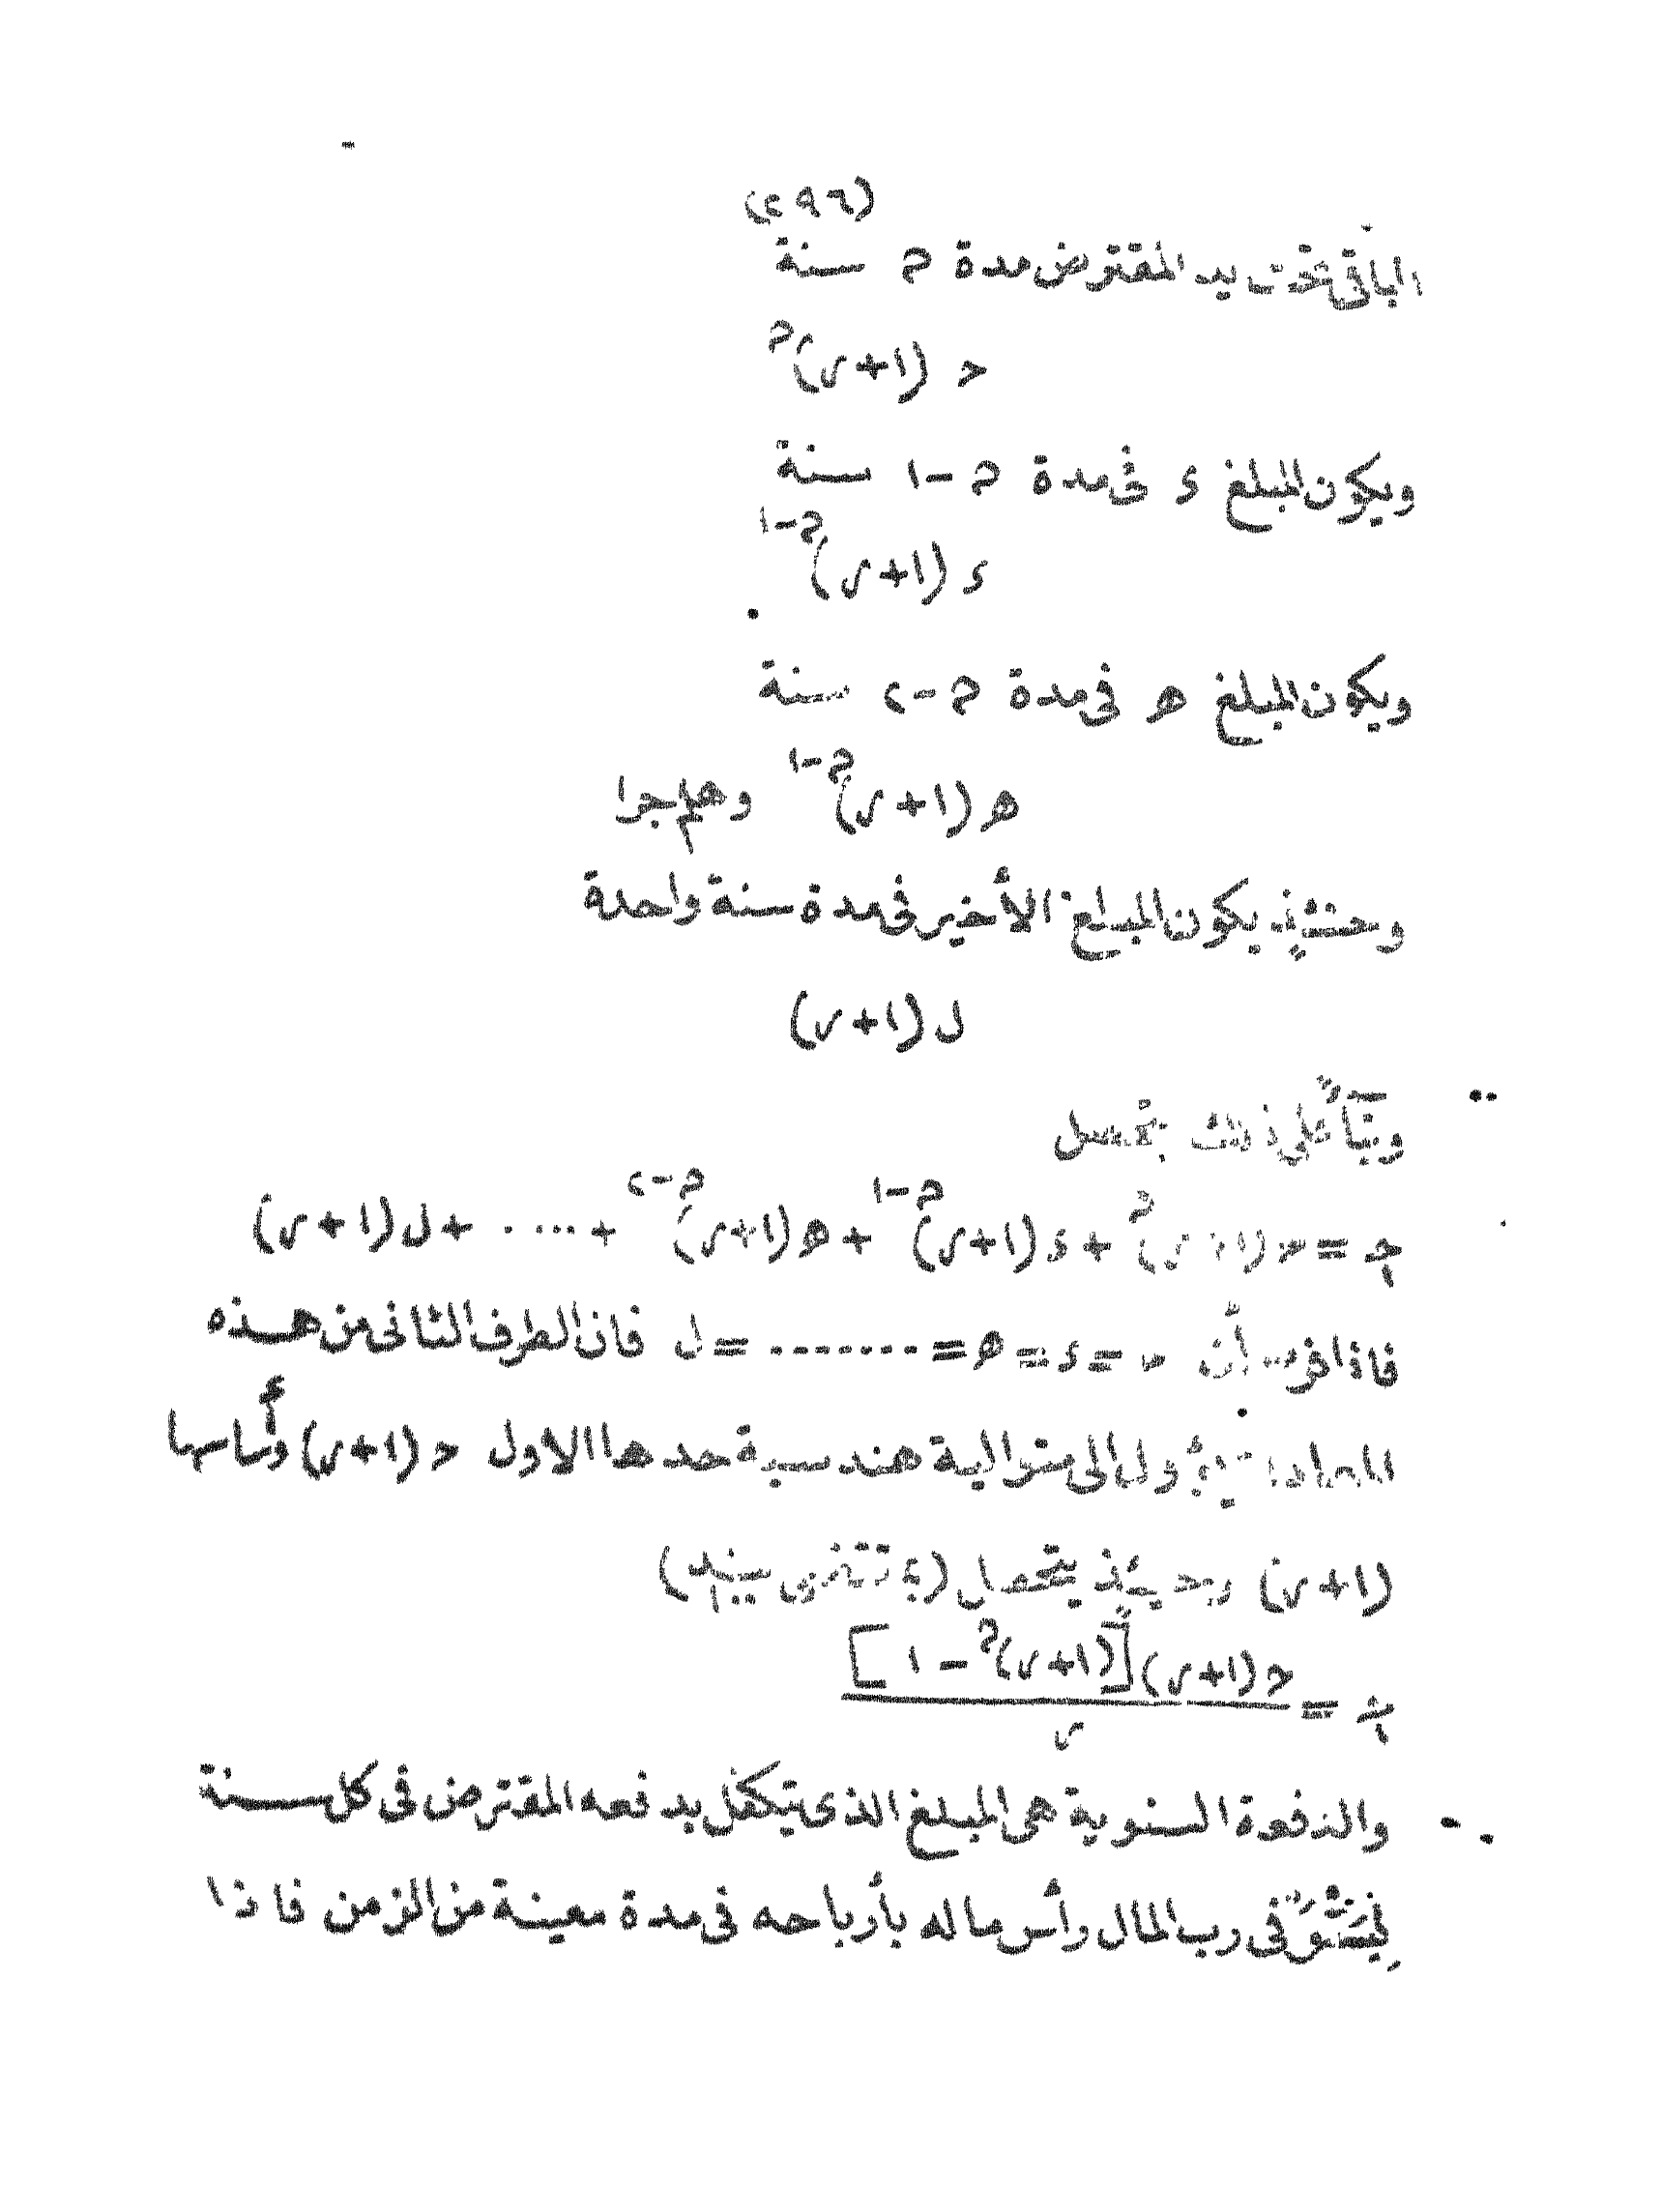 (٢٩٦)
الباقى تحت يد المقترض مدة م سنة
ح (١+ر)^م
ويكون المبلغ ء فى مدة م-١ سنة
ء (١+ر)^م-١
ويكون المبلغ ه فى مدة م-٢ سنة
ه (١+ر)^م-١ وهلم جرا
وحينئذ يكون المبلغ الأخير فى مدة سنة واحدة
ل (١+ر)
وبناًء على ذلك يتحصل
= ح (١+ر)^م + ء (١+ر)^م-١ + ه (١+ر)^م-٢ + .... + ل (١+ر)
فاذا فرض أن ح = ء = ه = ........ = ل فان الطرف الثانى من هذه
المعادلة يؤول الى متوالية هندسية حدها الاول ح (١+ر) وأساسها
(١+ر) وحينئذ يتحصل
= ح (١+ر)[(١+ر)^م - ١] / ر
والدفعة السنوية هى المبلغ الذى يتكفل بدفعه المقترض فى كل سنة
ليستوفى رب المال رأس ماله بأرباحه فى مدة معينة من الزمن فاذا